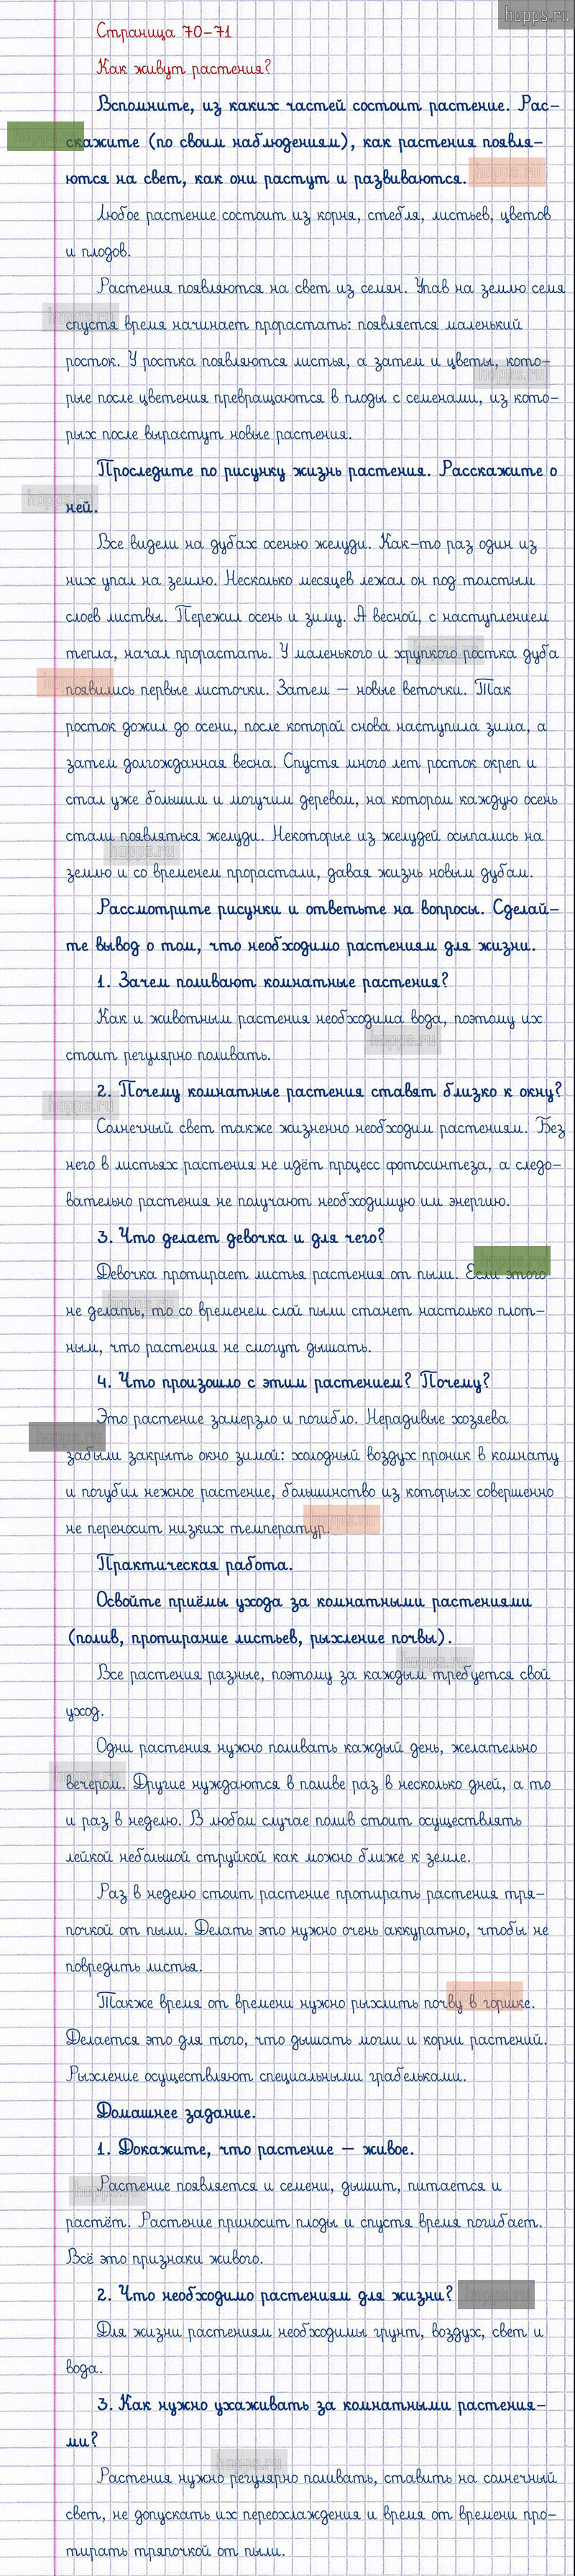 hopps.ru
Страница 70-71
Как живут растения?
Вспомните, из каких частей состоит растение. Рас-
скажите (по своим наблюдениям), как растения появля-
ются на свет, как они растут и развиваются.
Любое растение состоит из корня, стебля, листьев, цветов
и плодов.
Растения появляются на свет из семян. Упав на землю семя
спустя время начинает прорастать: появляется маленький
росток. У ростка появляются листья, а затем и цветы, кото-
рые после цветения превращаются в плоды с семенами, из кото-
рых после вырастут новые растения.
Проследите по рисунку жизнь растения. Расскажите о
ней.
Все видели на дубах осенью желуди. Как-то раз один из
них упал на землю. Несколько месяцев лежал он под толстым
слоев листвы. Пережил осень и зиму. А весной, с наступлением
тепла, начал прорастать. У маленького и хрупкого ростка дуба
появились первые листочки. Затем – новые веточки. Так
росток дожил до осени, после которой снова наступила зима, а
затем долгожданная весна. Спустя много лет росток окреп и
стал уже большим и могучим деревом, на котором каждую осень
стали появляться желуди. Некоторые из желудей осыпались на
землю и со временем прорастали, давая жизнь новым дубам.
Рассмотрите рисунки и ответьте на вопросы. Сделай-
те вывод о том, что необходимо растениям для жизни.
1. Зачем поливают комнатные растения?
Как и животным растения необходима вода, поэтому их
стоит регулярно поливать.
2. Почему комнатные растения ставят близко к окну?
Солнечный свет также жизненно необходим растениям. Без
него в листьях растения не идёт процесс фотосинтеза, а следо-
вательно растения не получают необходимую им энергию.
3. Что делает девочка и для чего?
Девочка протирает листья растения от пыли. Если этого
не делать, то со временем слой пыли станет настолько плот-
ным, что растения не смогут дышать.
4. Что произошло с этим растением? Почему?
Это растение замерзло и погибло. Нерадивые хозяева
забыли закрыть окно зимой: холодный воздух проник в комнату
и погубил нежное растение, большинство из которых совершенно
не переносит низких температур.
Практическая работа.
Освойте приёмы ухода за комнатными растениями
(полив, протирание листьев, рыхление почвы).
Все растения разные, поэтому за каждым требуется свой
уход.
Одни растения нужно поливать каждый день, желательно
вечером. Другие нуждаются в поливе раз в несколько дней, а то
и раз в неделю. В любом случае полив стоит осуществлять
лейкой небольшой струйкой как можно ближе к земле.
Раз в неделю стоит растение протирать растения тря-
почкой от пыли. Делать это нужно очень аккуратно, чтобы не
повредить листья.
Также время от времени нужно рыхлить почву в горшке.
Делается это для того, что дышать могли и корни растений.
Рыхление осуществляют специальными грабельками.
Домашнее задание.
1. Докажите, что растение – живое.
Растение появляется и семени, дышит, питается и
растёт. Растение приносит плоды и спустя время погибает.
Всё это признаки живого.
2. Что необходимо растениям для жизни?
Для жизни растениям необходимы грунт, воздух, свет и
вода.
3. Как нужно ухаживать за комнатными растения-
ми?
Растения нужно регулярно поливать, ставить на солнечный
свет, не допускать их переохлаждения и время от времени про-
тирать тряпочкой от пыли.